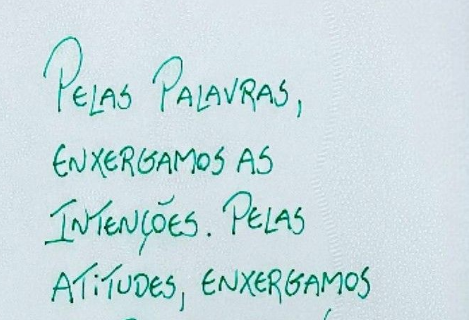 Pelas Palavras,
enxergamos as
Intenções. Pelas
atitudes, enxergamos